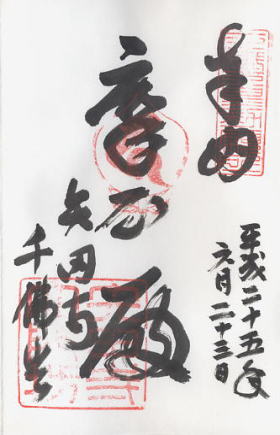 奉拝
平成二十五年
六月二十三日
摩尼殿
矢田寺
千佛堂